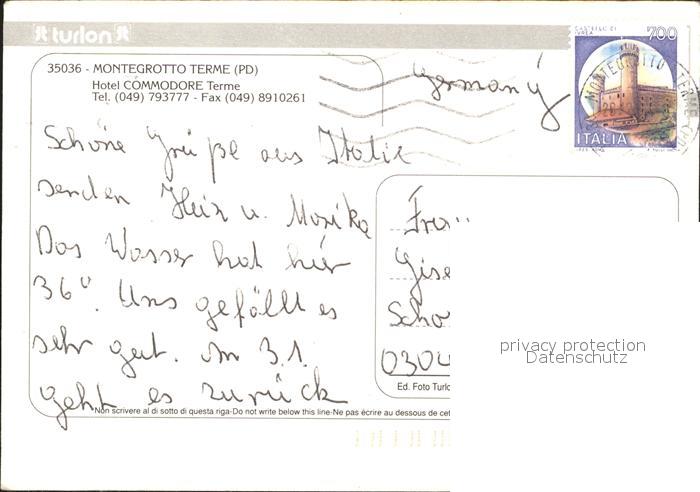 turlon
35036 - MONTEGROTTO TERME (PD)
Hotel COMMODORE Terme
Tel. (049) 793777 - Fax (049) 8910261
Germany
CASTELLO DI IVREA
700
ITALIA
MONTEGROTTO TERME
Schöne Grüße aus Italie
senden Heinz u. Monika
Das Wasser hat hier
36°. Uns gefällt es
sehr gut. Am 3.1.
geht es zurück
Frau
Gise
Scho
0304
privacy protection
Datenschutz
Ed. Foto Turlo
Non scrivere al di sotto di questa riga-Do not write below this line-Ne pas écrire au dessous de cet